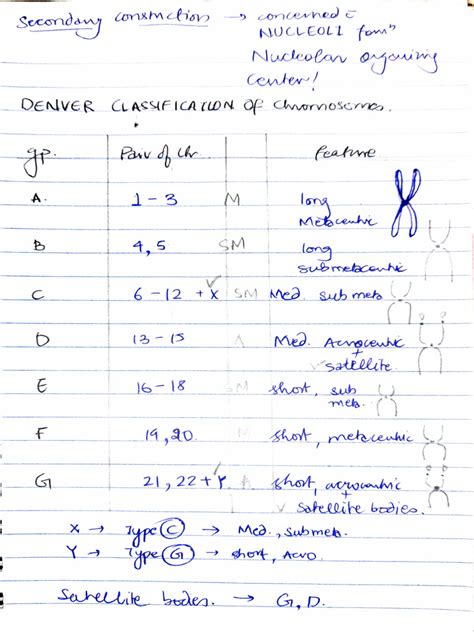 Secondary constriction → concerned c̄
NUCLEOLI formⁿ
Nucleolar organizing
center!
DENVER CLASSIFICATION of chromosomes.
gp. Pair of Chr. feature
A. 1 - 3 M long
Metacentric
B 4, 5 SM long
submetacentric
C 6 - 12 + X SM Med. sub meta
D 13 - 15 A Med. Acrocentric
+
satellite.
E 16 - 18 SM short, sub
meta.
F 19, 20. M short, metacentric
G 21, 22 + Y A short, acrocentric
+
Satellite bodies.
X → Type C → Med., submeta.
Y → Type G → short, Acro.
Satellite bodies. → G, D.